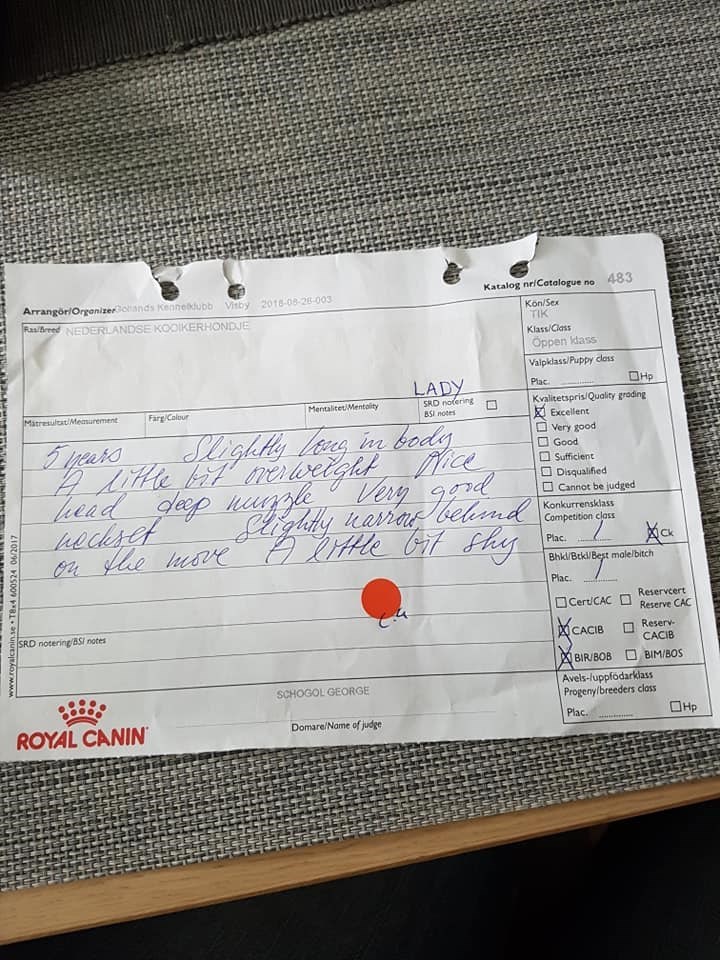 Katalog nr/Catalogue no 483
Arrangör/Organizer Gotlands Kennelklubb Visby 2018-08-26-003
Ras/Breed NEDERLANDSE KOOIKERHONDJE
Kön/Sex
TIK
Klass/Class
Öppen klass
Valpklass/Puppy class
Plac. ............ Hp
LADY
Mätresultat/Measurement Färg/Colour Mentalitet/Mentality SRD notering
BSI notes
5 years Slightly long in body
A little bit overweight Nice
head deep muzzle Very good
neckset Slightly narrow behind
on the move A little bit shy
Kvalitetspris/Quality grading
X Excellent
Very good
Good
Sufficient
Disqualified
Cannot be judged
Konkurrensklass
Competition class
Plac. 1 X Ck
Bhkl/Btkl/Best male/bitch
Plac. 1
Cert/CAC Reservcert
Reserve CAC
X CACIB Reserv-
CACIB
X BIR/BOB BIM/BOS
Avels-/uppfödarklass
Progeny/breeders class
Plac. ............ Hp
SRD notering/BSI notes
SCHOGOL GEORGE
Domare/Name of judge
ROYAL CANIN
www.royalcanin.se • T8x4 600524 06/2017